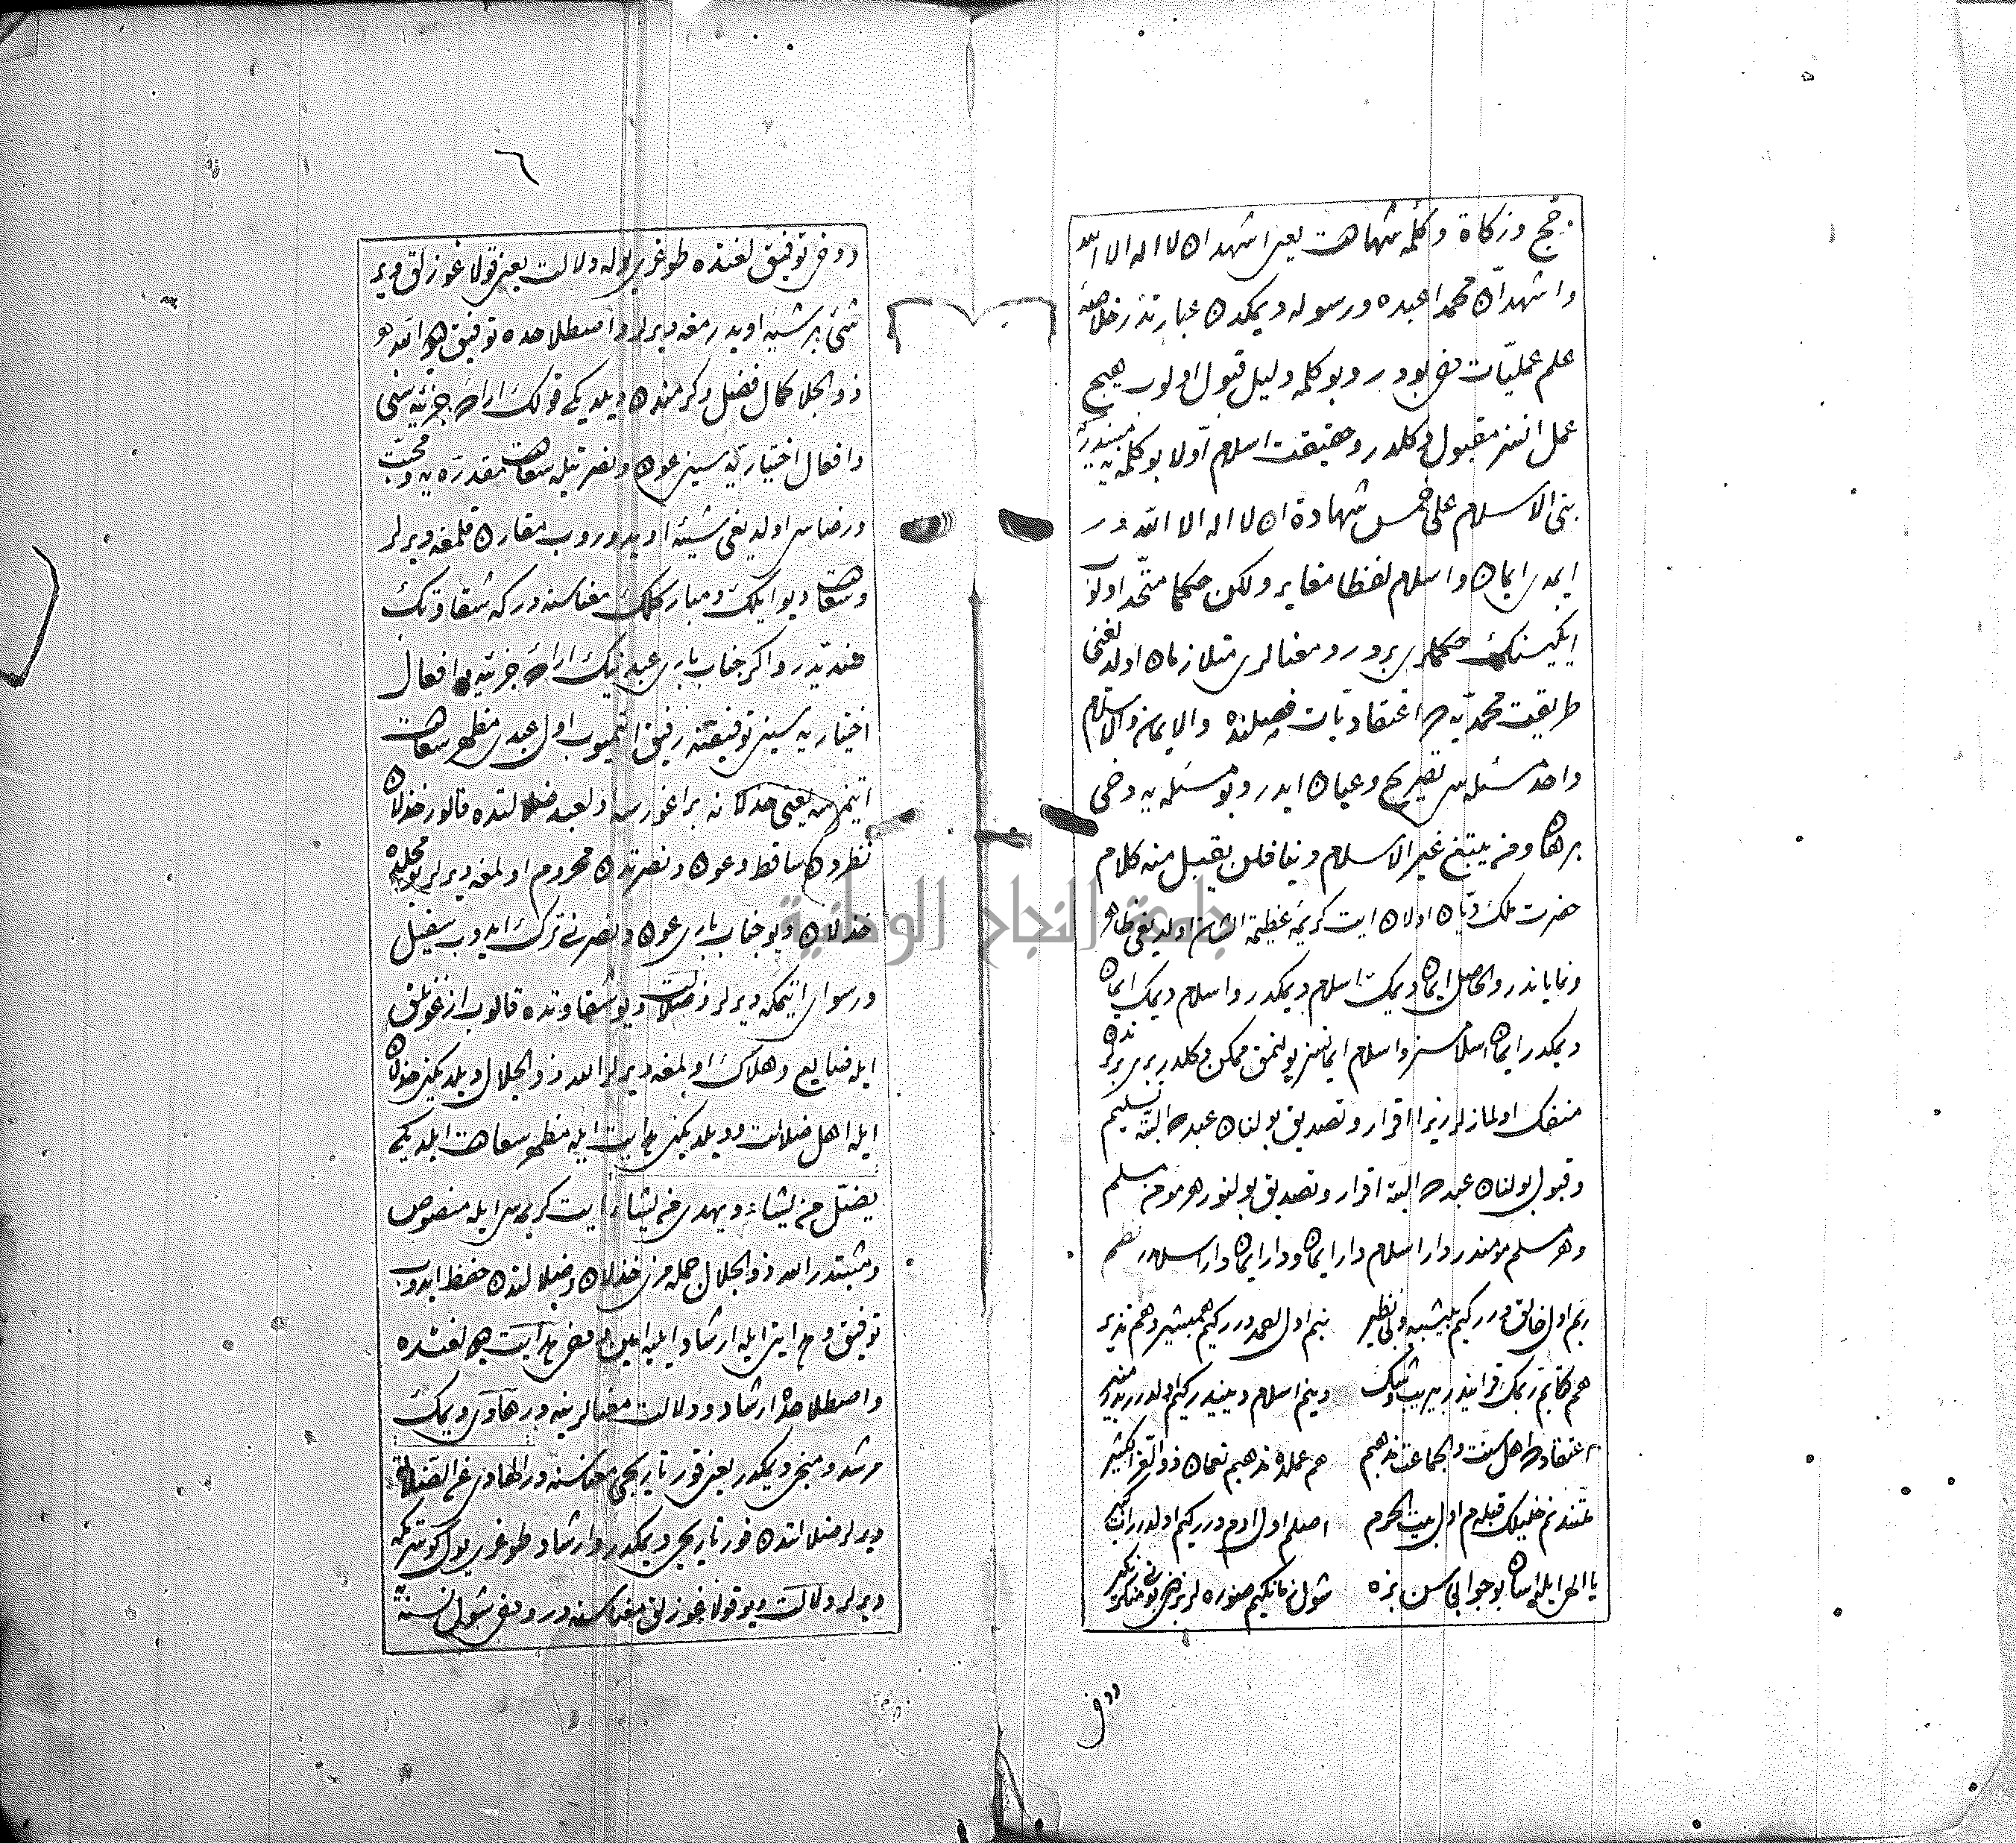 حج وزكاة وكلمه شهادت يعنى اشهد ان لا اله الا الله
واشهد ان محمدا عبده ورسوله ديمكدن عبارتدر خلاصه
علم عمليات بودر وبو كلمه دليل قبول اولوب هيچ
عمل انسز مقبول دكلدر وحقيقت اسلام اولا بو كلمه يه
بنى الاسلام على خمس شهادة ان لا اله الا الله در
ايمدى ايمان واسلام لفظا مغاير ولكن حكما متحد اولان
ايكيسنك حكملرى بردر ومعنالرى متلازمان اولديغنى
طريقت محمديه ده اعتقاديات فصلنده والايمان والاسلام
واحد مسئله سى تصريح وعيان ايدر وبو مسئله يه دخى
برهان ومن يبتغ غير الاسلام دينا فلن يقبل منه كلام
حضرت ملك ديان اولان ايت كريمه عظيمة الشان اولديغى ظاهر
ونماياندر والحاصل ايمان ديمك اسلام ديمكدر واسلام ديمك ايمان
ديمكدر ايمان اسلامسز واسلام ايمانسز بولنمق ممكن دكلدر بربرلرندن
منفك اولمازلر زيرا اقرار وتصديق بولنان عبده البته تسليم
وقبول بولنان عبده البته اقرار وتصديق بولنور هر مومن مسلم
وهر مسلم مومندر دار اسلام دار ايمان ودار ايمان دار اسلامدر نظم
ربم اول خالق درركيم بيشبيه وبى نظير نبيم اول احمد درركيم هم بشير وهم نذير
هم كتابم ربمك قرانيدر دينم اسلام دينيدر كيم اولدر
اعتقادده اهل سنت والجماعت مذهبم هم عملده مذهبم نعمان
ملتندنم خليلك قبله م اول بيت الحرم اصلم اول ادم درركيم اولدر
يا الهى ايله اسان بو جوابى سن بزه شول زمانكيم صوره لر بزدن بونى منكر نكير
ووفى
٦
ووفى توفيق لغتده طوغرى يوله دلالت يعنى قولاغوزلق وبر
شئ بر شيئه اويدرمغه ديرلر واصطلاحده توفيق هو الله
ذو الجلال كمال فضل وكرمندن ديلديكى قولك اراده جزئيه سنى
وافعال اختياريه سينى عون ونصرتيله سعادت مقدره يه ومحبت
ورضاسى اولديغى شيئه اويدوروب مقارن قلمغه ديرلر
وسعادت ديو ايلك ومباركلك معناسنه در كه شقاوتك
ضديدر واكر جناب بارى عبدينك اراده جزئيه وافعال
اختياريه سينى توفيقنه رفيق اتميوب اول عبدى مظهر سعادت
اتمزسه يعنى خذلانه براغورسه اول عبد ضلالتده قالور خذلان
نظردن ساقط وعون ونصرتدن محروم اولمغه ديرلر
خذلان ديو جناب بارى عون ونصرتى ترك ايدوب سفيل
ورسواى اتمكه ديرلر وضلالت ديو شقاوتده قالوب ازغونلق
ايله ضايع وهلاك اولمغه ديرلر الله ذو الجلال ديلديكنى خذلان
ايله اهل ضلالت وديلديكنى هدايت ايله مظهر سعادت ايلديكى
يضل من يشاء ويهدى من يشاء ايت كريمه سى ايله منصوص
ومثبتدر الله ذو الجلال جمله مزى خذلان وضلالتدن حفظ ايدوب
توفيق وهدايتى ايله ارشاد ايليه امين هدايت لغتده
واصطلاحده ارشاد ودلالت معنالرينه در هادى ديمك
مرشد ومنجى ديمكدر يعنى قورتاريجى معناسنه در الهادى عن الضلالة
ديرلر ضلالتدن قورتاريجى ديمكدر وارشاد طوغرى يول كوسترمكه
ديرلر ودلالت ديو قولاغوزلق معناسنه در شول
جامعة النجاح الوطنية